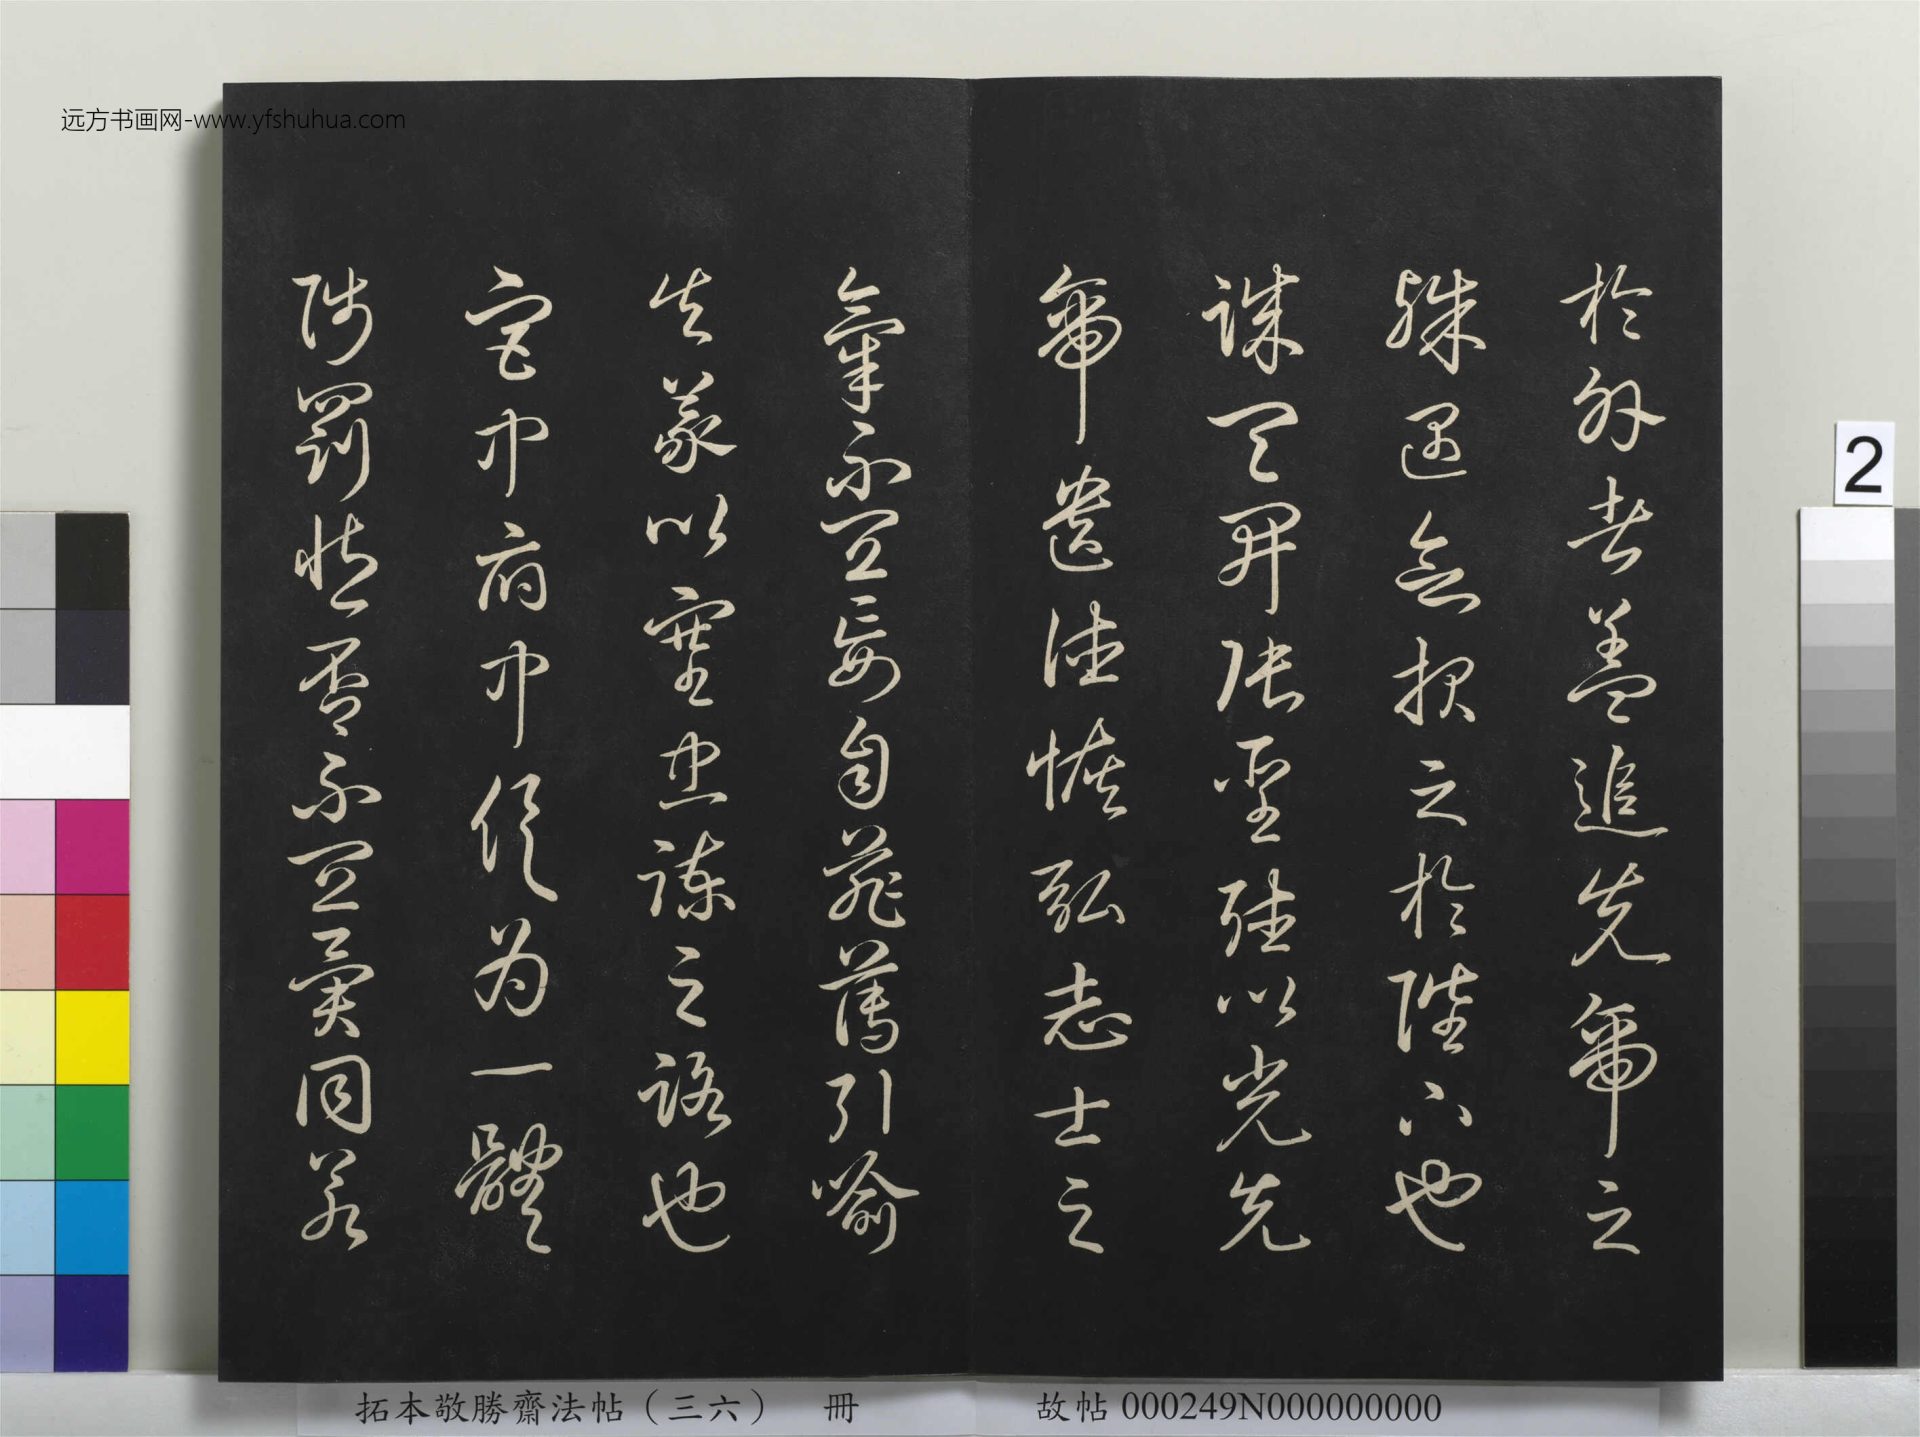 於外者蓋追先帝之
殊遇欲報之於陛下也
誠宜開張聖聽以光先
帝遺德恢弘志士之
氣不宜妄自菲薄引喻
失義以塞忠諫之路也
宮中府中俱為一體
陟罰臧否不宜異同若
远方书画网-www.yfshuhua.com
2
拓本敬勝齋法帖（三六） 冊 故帖 000249N000000000